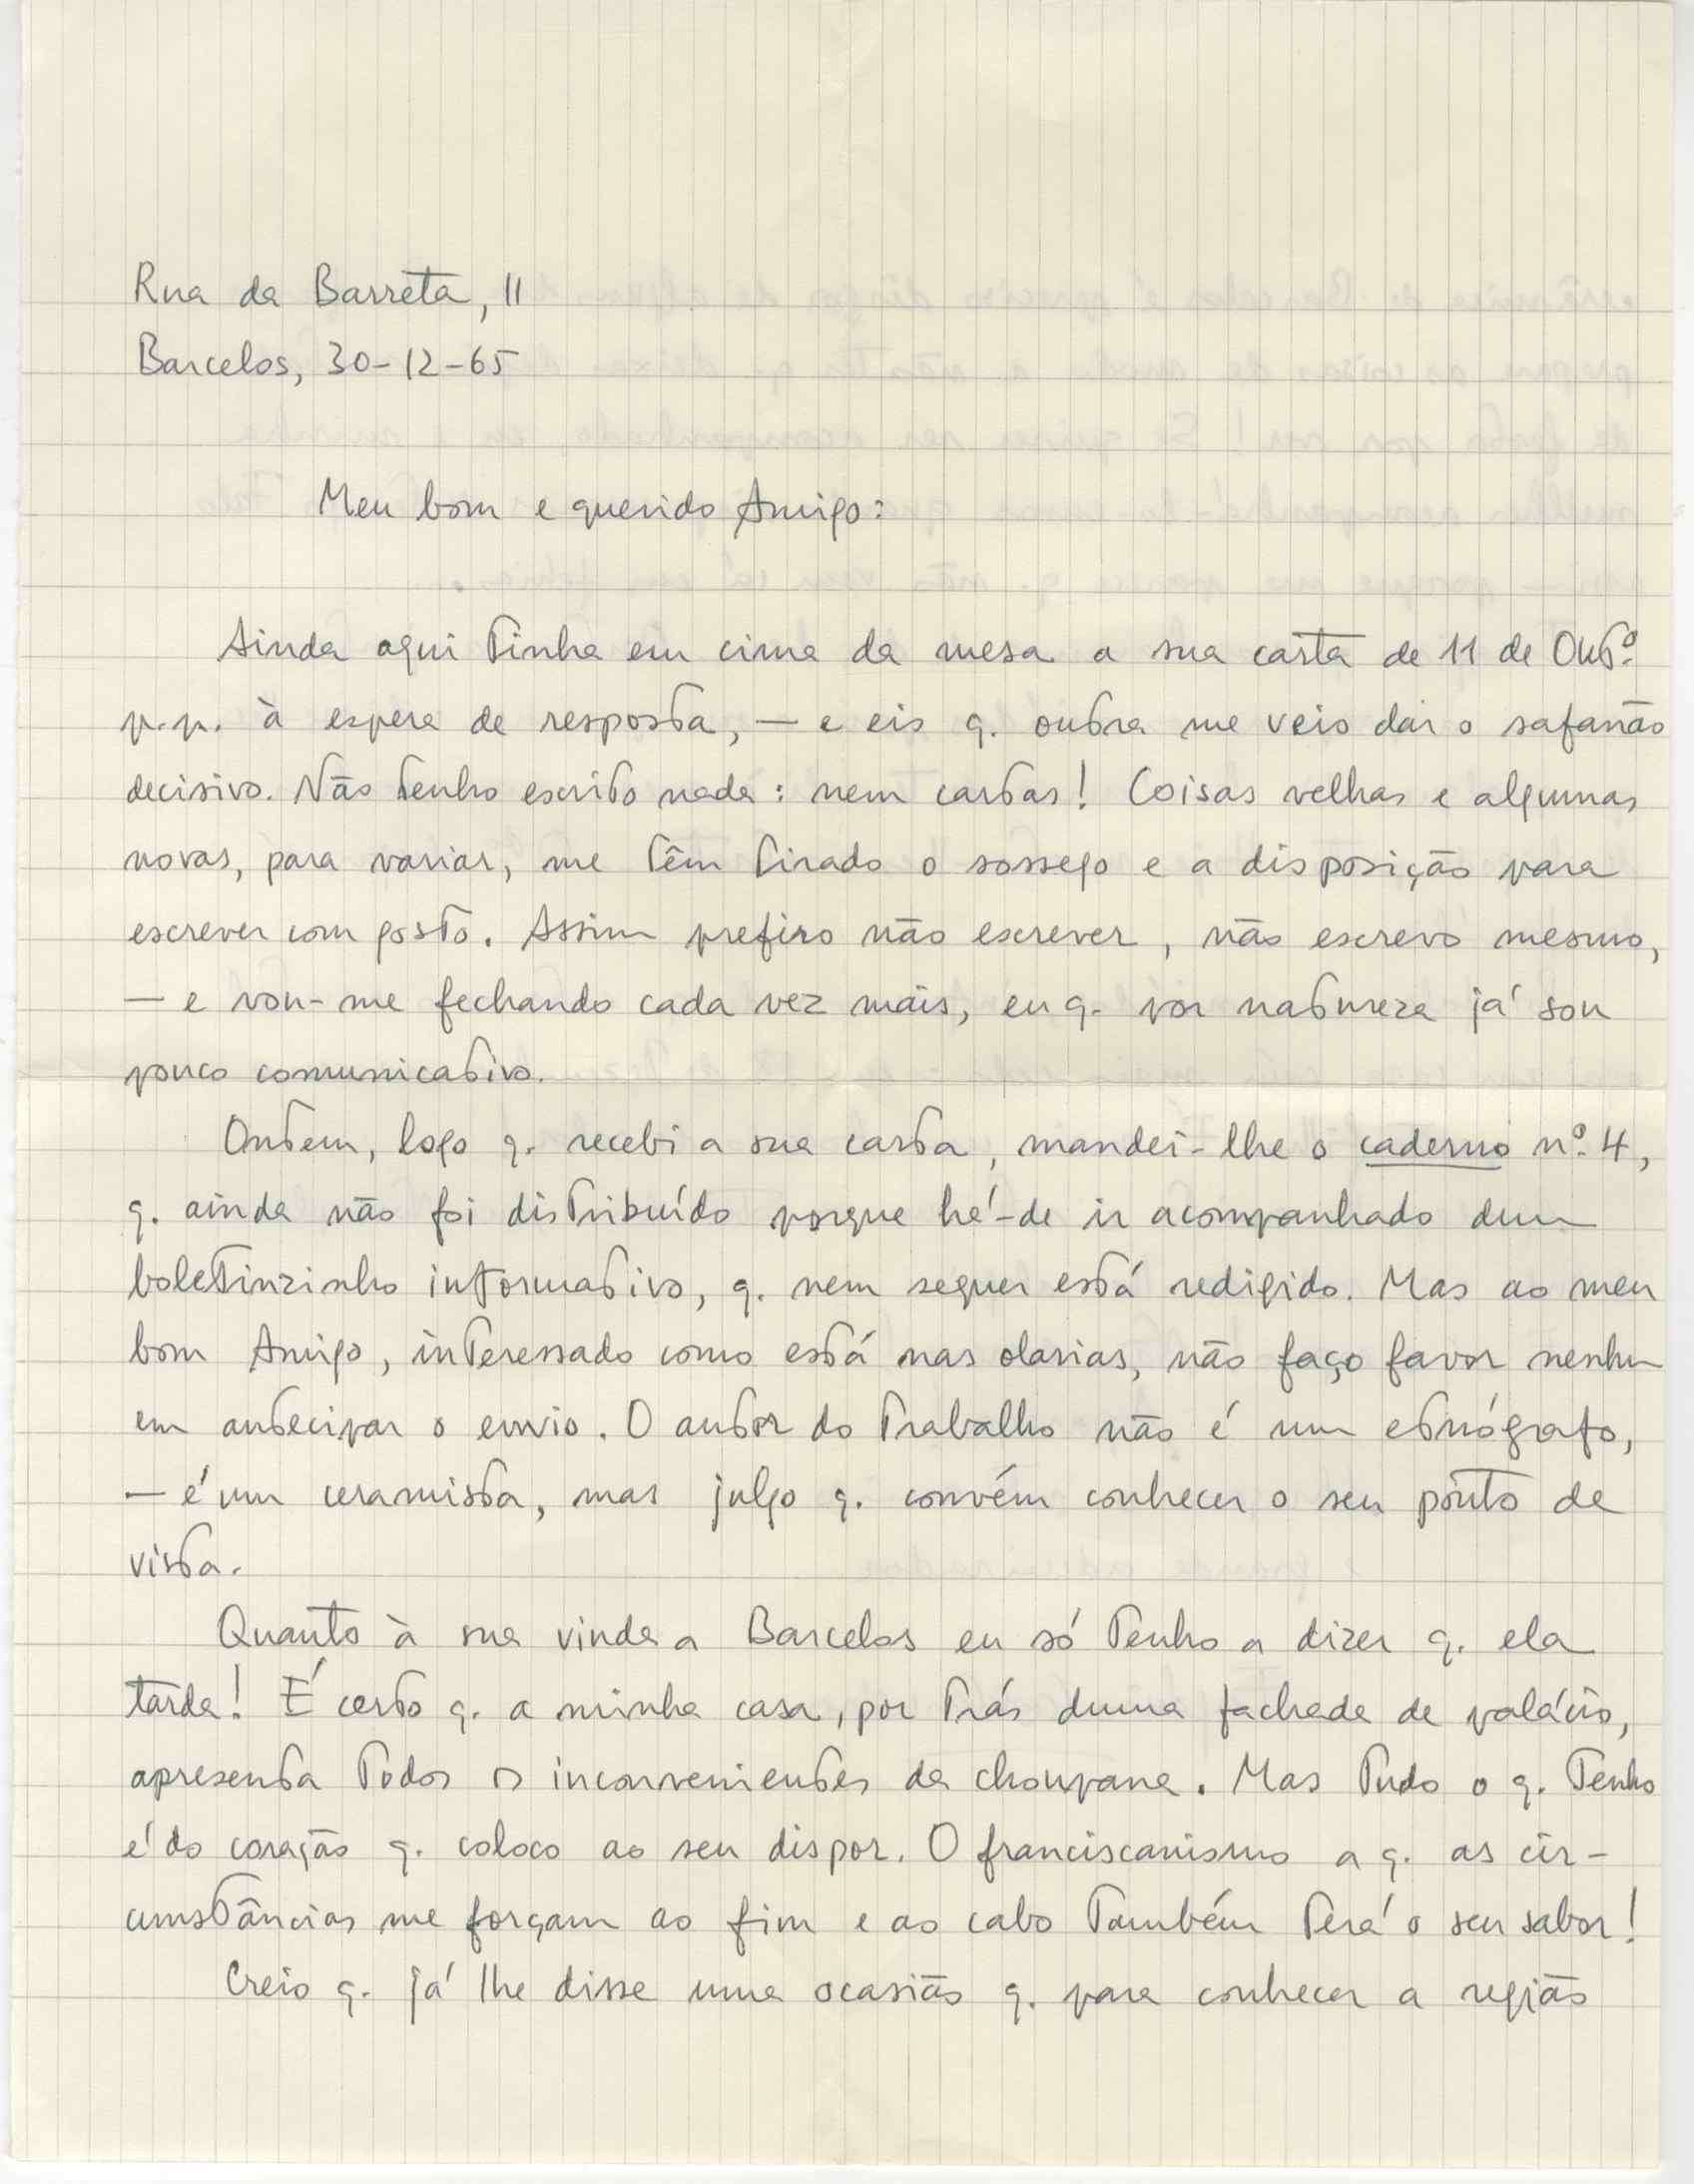 Rua da Barreta, 11
Barcelos, 30-12-65
Meu bom e querido Amigo:
Ainda aqui tinha em cima da mesa a sua carta de 11 de Outº.
p.p. à espera de resposta, — e eis q. outra me veio dar o safanão
decisivo. Não tenho escrito nada: nem cartas! Coisas velhas e algumas
novas, para variar, me têm tirado o sossego e a disposição para
escrever com gosto. Assim prefiro não escrever, não escrevo mesmo,
— e vou-me fechando cada vez mais, eu q. por natureza já sou
pouco comunicativo.
Ontem, logo q. recebi a sua carta, mandei-lhe o caderno nº. 4,
q. ainda não foi distribuído porque há-de ir acompanhado dum
boletinzinho informativo, q. nem sequer está redigido. Mas ao meu
bom Amigo, interessado como está nas olarias, não faço favor nenhum
em antecipar o envio. O autor do trabalho não é um etnógrafo,
— é um ceramista, mas julgo q. convém conhecer o seu ponto de
vista.
Quanto à sua vinda a Barcelos eu só tenho a dizer q. ela
tarda! É certo q. a minha casa, por trás duma fachada de palácio,
apresenta todos os inconvenientes da choupana. Mas tudo o q. tenho
é do coração q. coloco ao seu dispor. O franciscanismo a q. as cir-
cunstâncias me forçam ao fim e ao cabo também terá o seu sabor!
Creio q. já lhe disse uma ocasião q. para conhecer a região